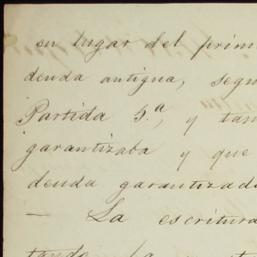 su lugar del prim
denda antigua, segu
Partida 5.ª, y tam
garantizaba y que
denda garantizad
— La escritura
tando la